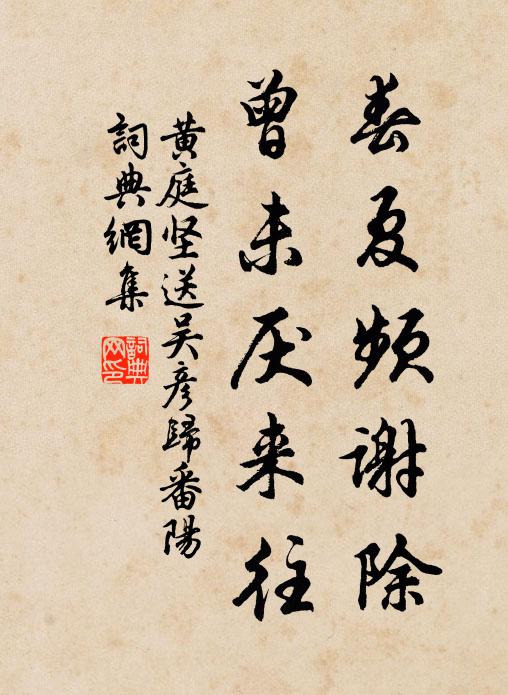 春夏频谢除
曾未厌来往
黄庭坚送吴彦归番阳
詞典網集
詞典网印